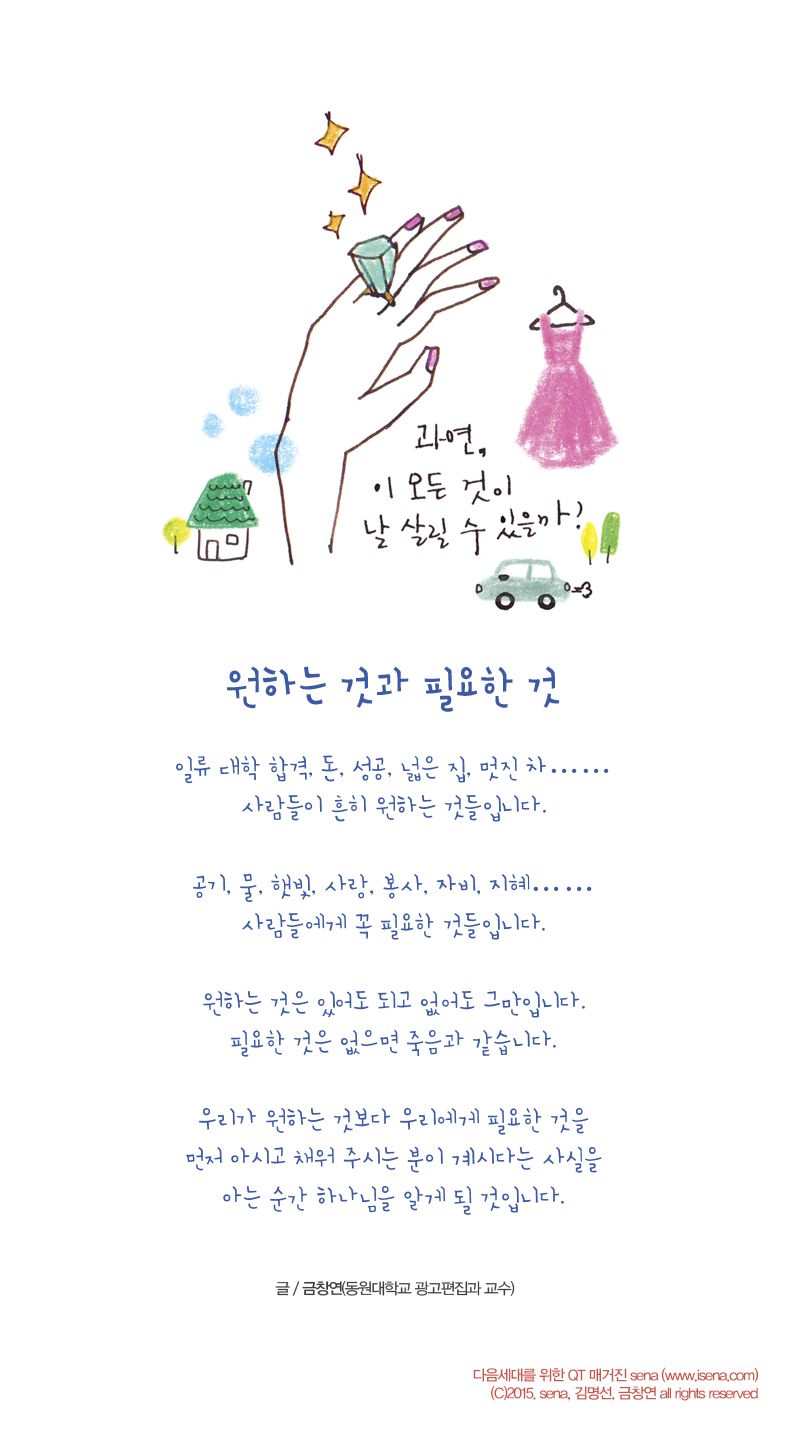 과연,
이 모든 것이
날 살릴 수 있을까?
원하는 것과 필요한 것
일류 대학 합격, 돈, 성공, 넓은 집, 멋진 차……
사람들이 흔히 원하는 것들입니다.
공기, 물, 햇빛, 사랑, 봉사, 자비, 지혜……
사람들에게 꼭 필요한 것들입니다.
원하는 것은 있어도 되고 없어도 그만입니다.
필요한 것은 없으면 죽음과 같습니다.
우리가 원하는 것보다 우리에게 필요한 것을
먼저 아시고 채워 주시는 분이 계시다는 사실을
아는 순간 하나님을 알게 될 것입니다.
글 / 금창연(동원대학교 광고편집과 교수)
다음세대를 위한 QT 매거진 sena (www.isena.com)
(C)2015. sena, 김명선, 금창연 all rights reserved